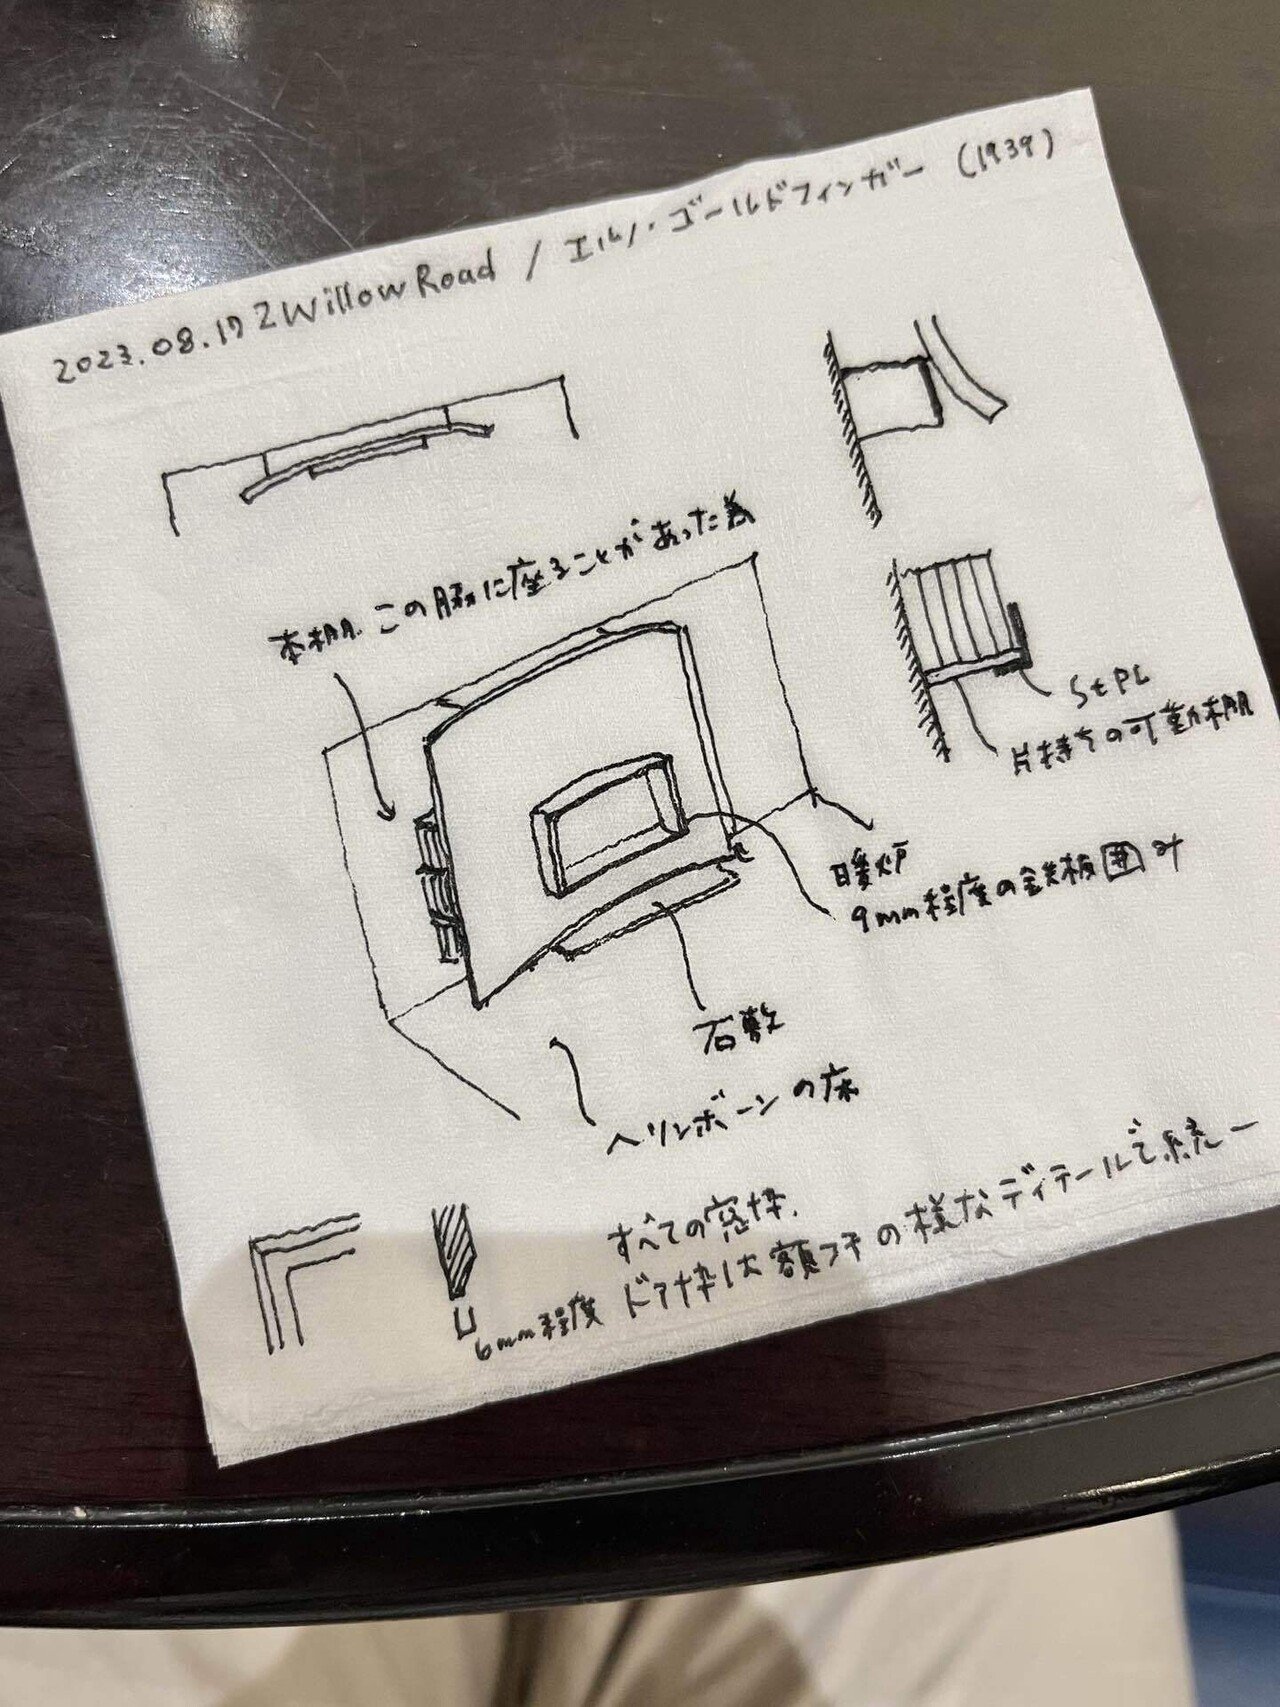 2023.08.17 2 Willow Road / エルノ・ゴールドフィンガー (1939)
本棚. この脇に座ることがあった為
St PL
片持ちの可動棚
暖炉
9mm程度の鉄板囲み
石敷
ヘリンボーンの床
すべての窓枠、
ドア枠は額フチの様なディテールで統一
6mm程度